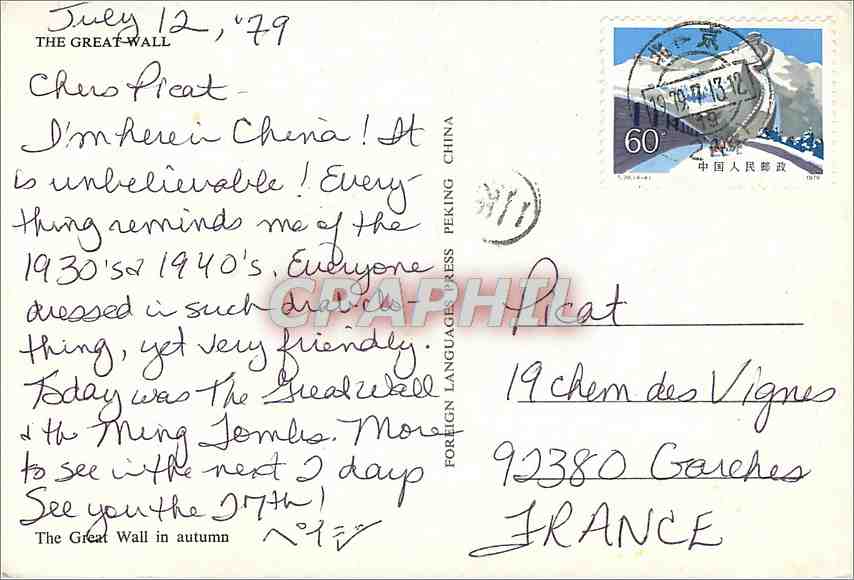 July 12, '79
THE GREAT WALL
Chers Picat -
I'm here in China! It
is unbelievable! Every-
thing reminds me of the
1930's & 1940's. Everyone
dressed in such drab clo-
thing, yet very friendly.
Today was The Great Wall
& the Ming Tombs. More
to see in the next 2 days
See you the 27th!
The Great Wall in autumn
ペイジ
FOREIGN LANGUAGES PRESS PEKING CHINA
北京
1979.7.13.12
60
中国人民邮政
1979
Picat
19 chem des Vignes
92380 Garches
FRANCE
CPAPHIL